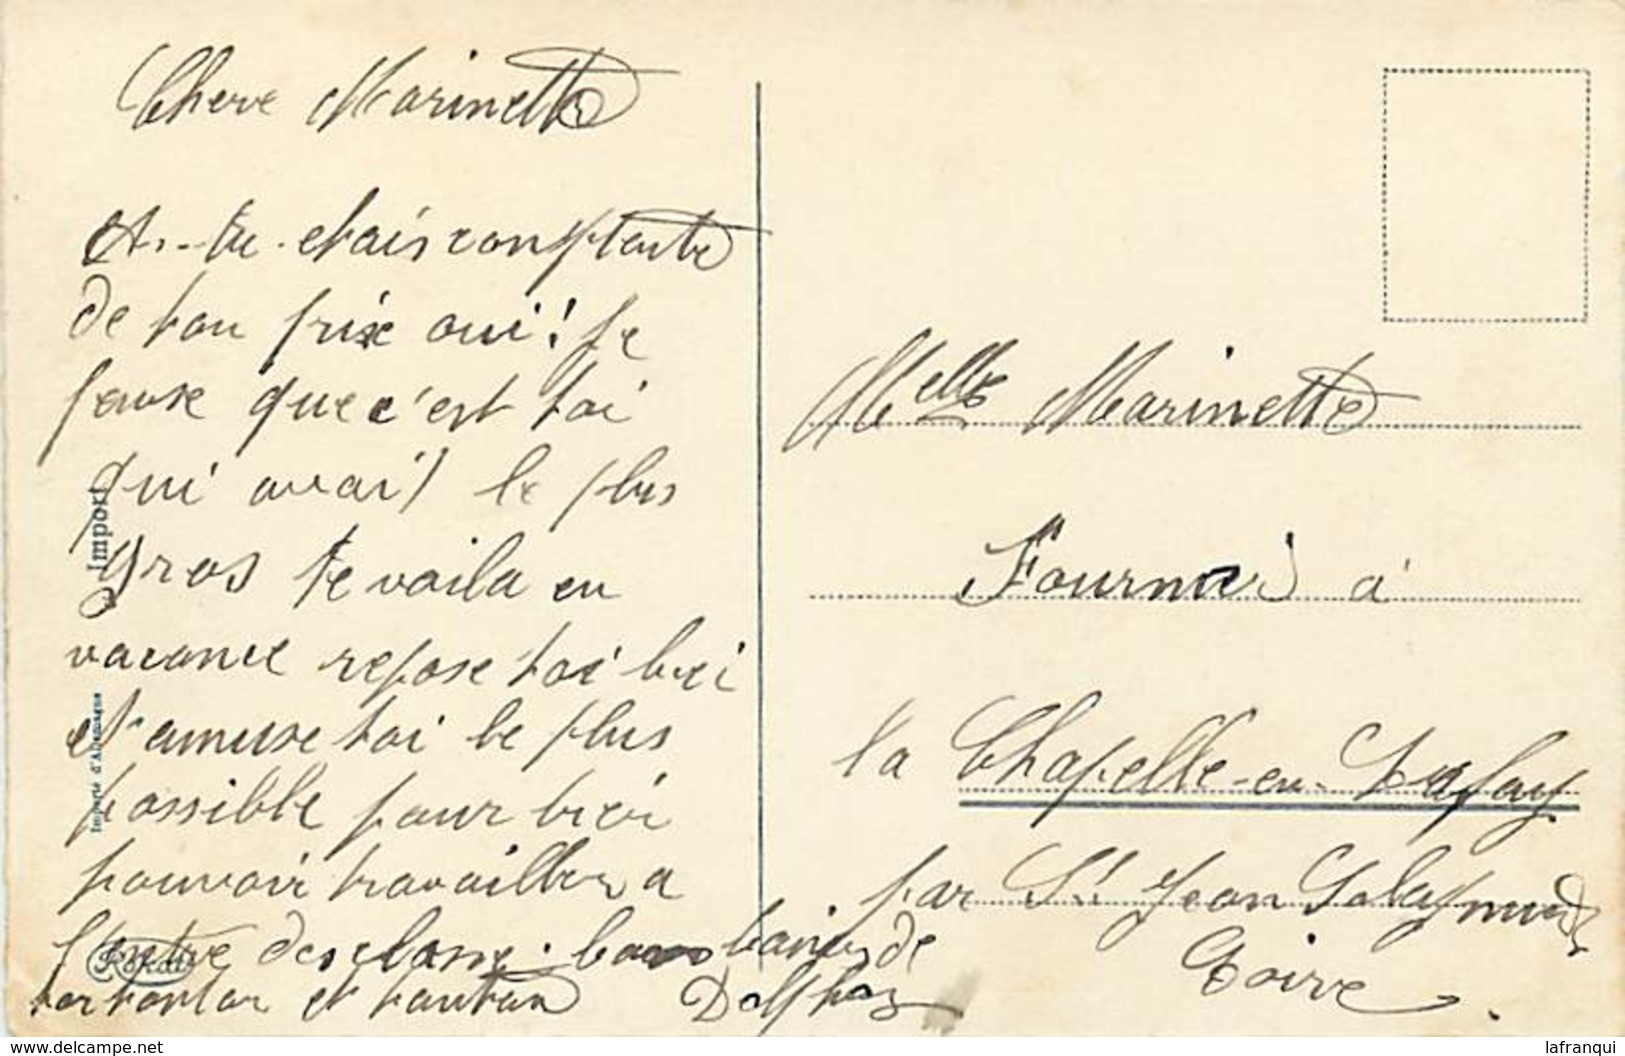 Chere Marinette
et-tu etais conptente
de ton prix oui! je
pense que c'est toi
qui avait le plus
gros te voila en
vacance repose toi bien
et amuse toi le plus
possible pour bien
pouvoir travailler a
l'entre des classe. bons baiser de
ton tonton et tantan Dolphan
Import
Importé d'Allemagne
Rokat
Melle Marinette
Fournier à
la Chapelle-en-Lafay
par St Jean Solaymieux
Loire
lafranqui